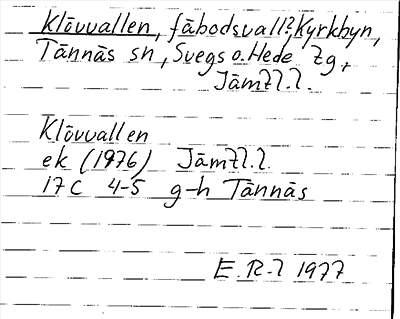 Klövvallen, fäbodsvall?, Kyrkbyn,
Tännäs sn, Svegs o. Hede tg,
Jämtl. l.
Klövvallen
ek (1976) Jämtl. l.
17C 4-5 g-h Tännäs
E. R-l 1977